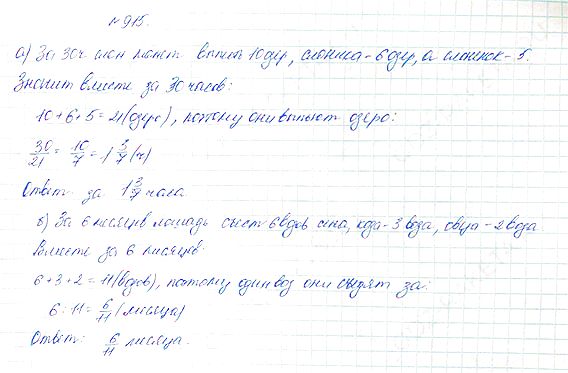 № 915.
а) За 30 ч слон может выпить 10 озёр, слониха - 6 озёр, а слонёнок - 5.
Значит вместе за 30 часов:
10 + 6 + 5 = 21 (озеро), поэтому они выпьют озеро:
30/21 = 10/7 = 1 3/7 (ч)
Ответ: за 1 3/7 часа.
б) За 6 месяцев лошадь съест 6 возов сена, коза - 3 воза, овца - 2 воза.
Вместе за 6 месяцев:
6 + 3 + 2 = 11 (возов), поэтому один воз они съедят за:
6 : 11 = 6/11 (месяца)
Ответ: 6/11 месяца.